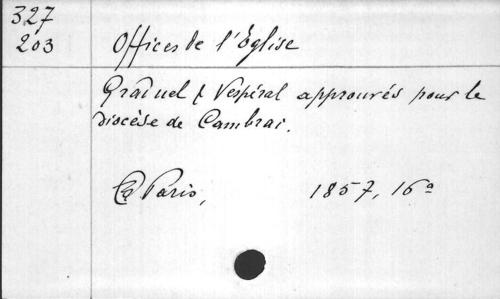 327
203 Offices de l'Église
Graduel & Vespéral approuvés pour le
diocèse de Cambrai.
Paris, 1857, 16º